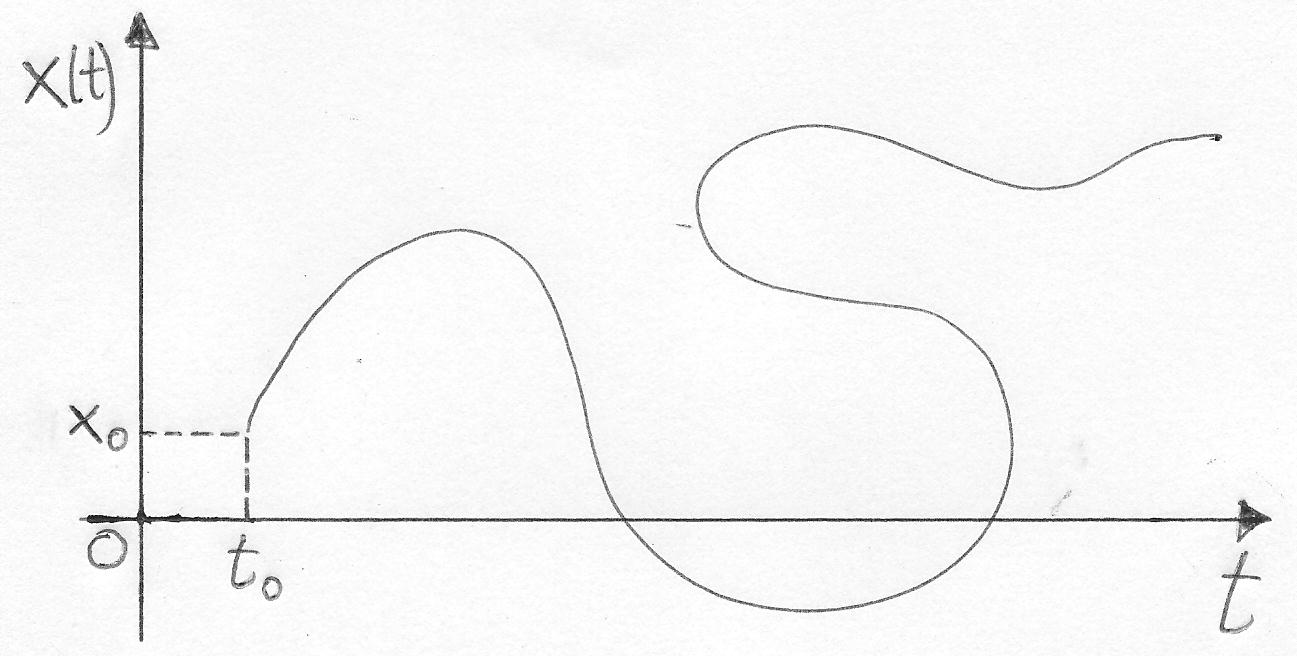 x(t)
x₀
0
t₀
t